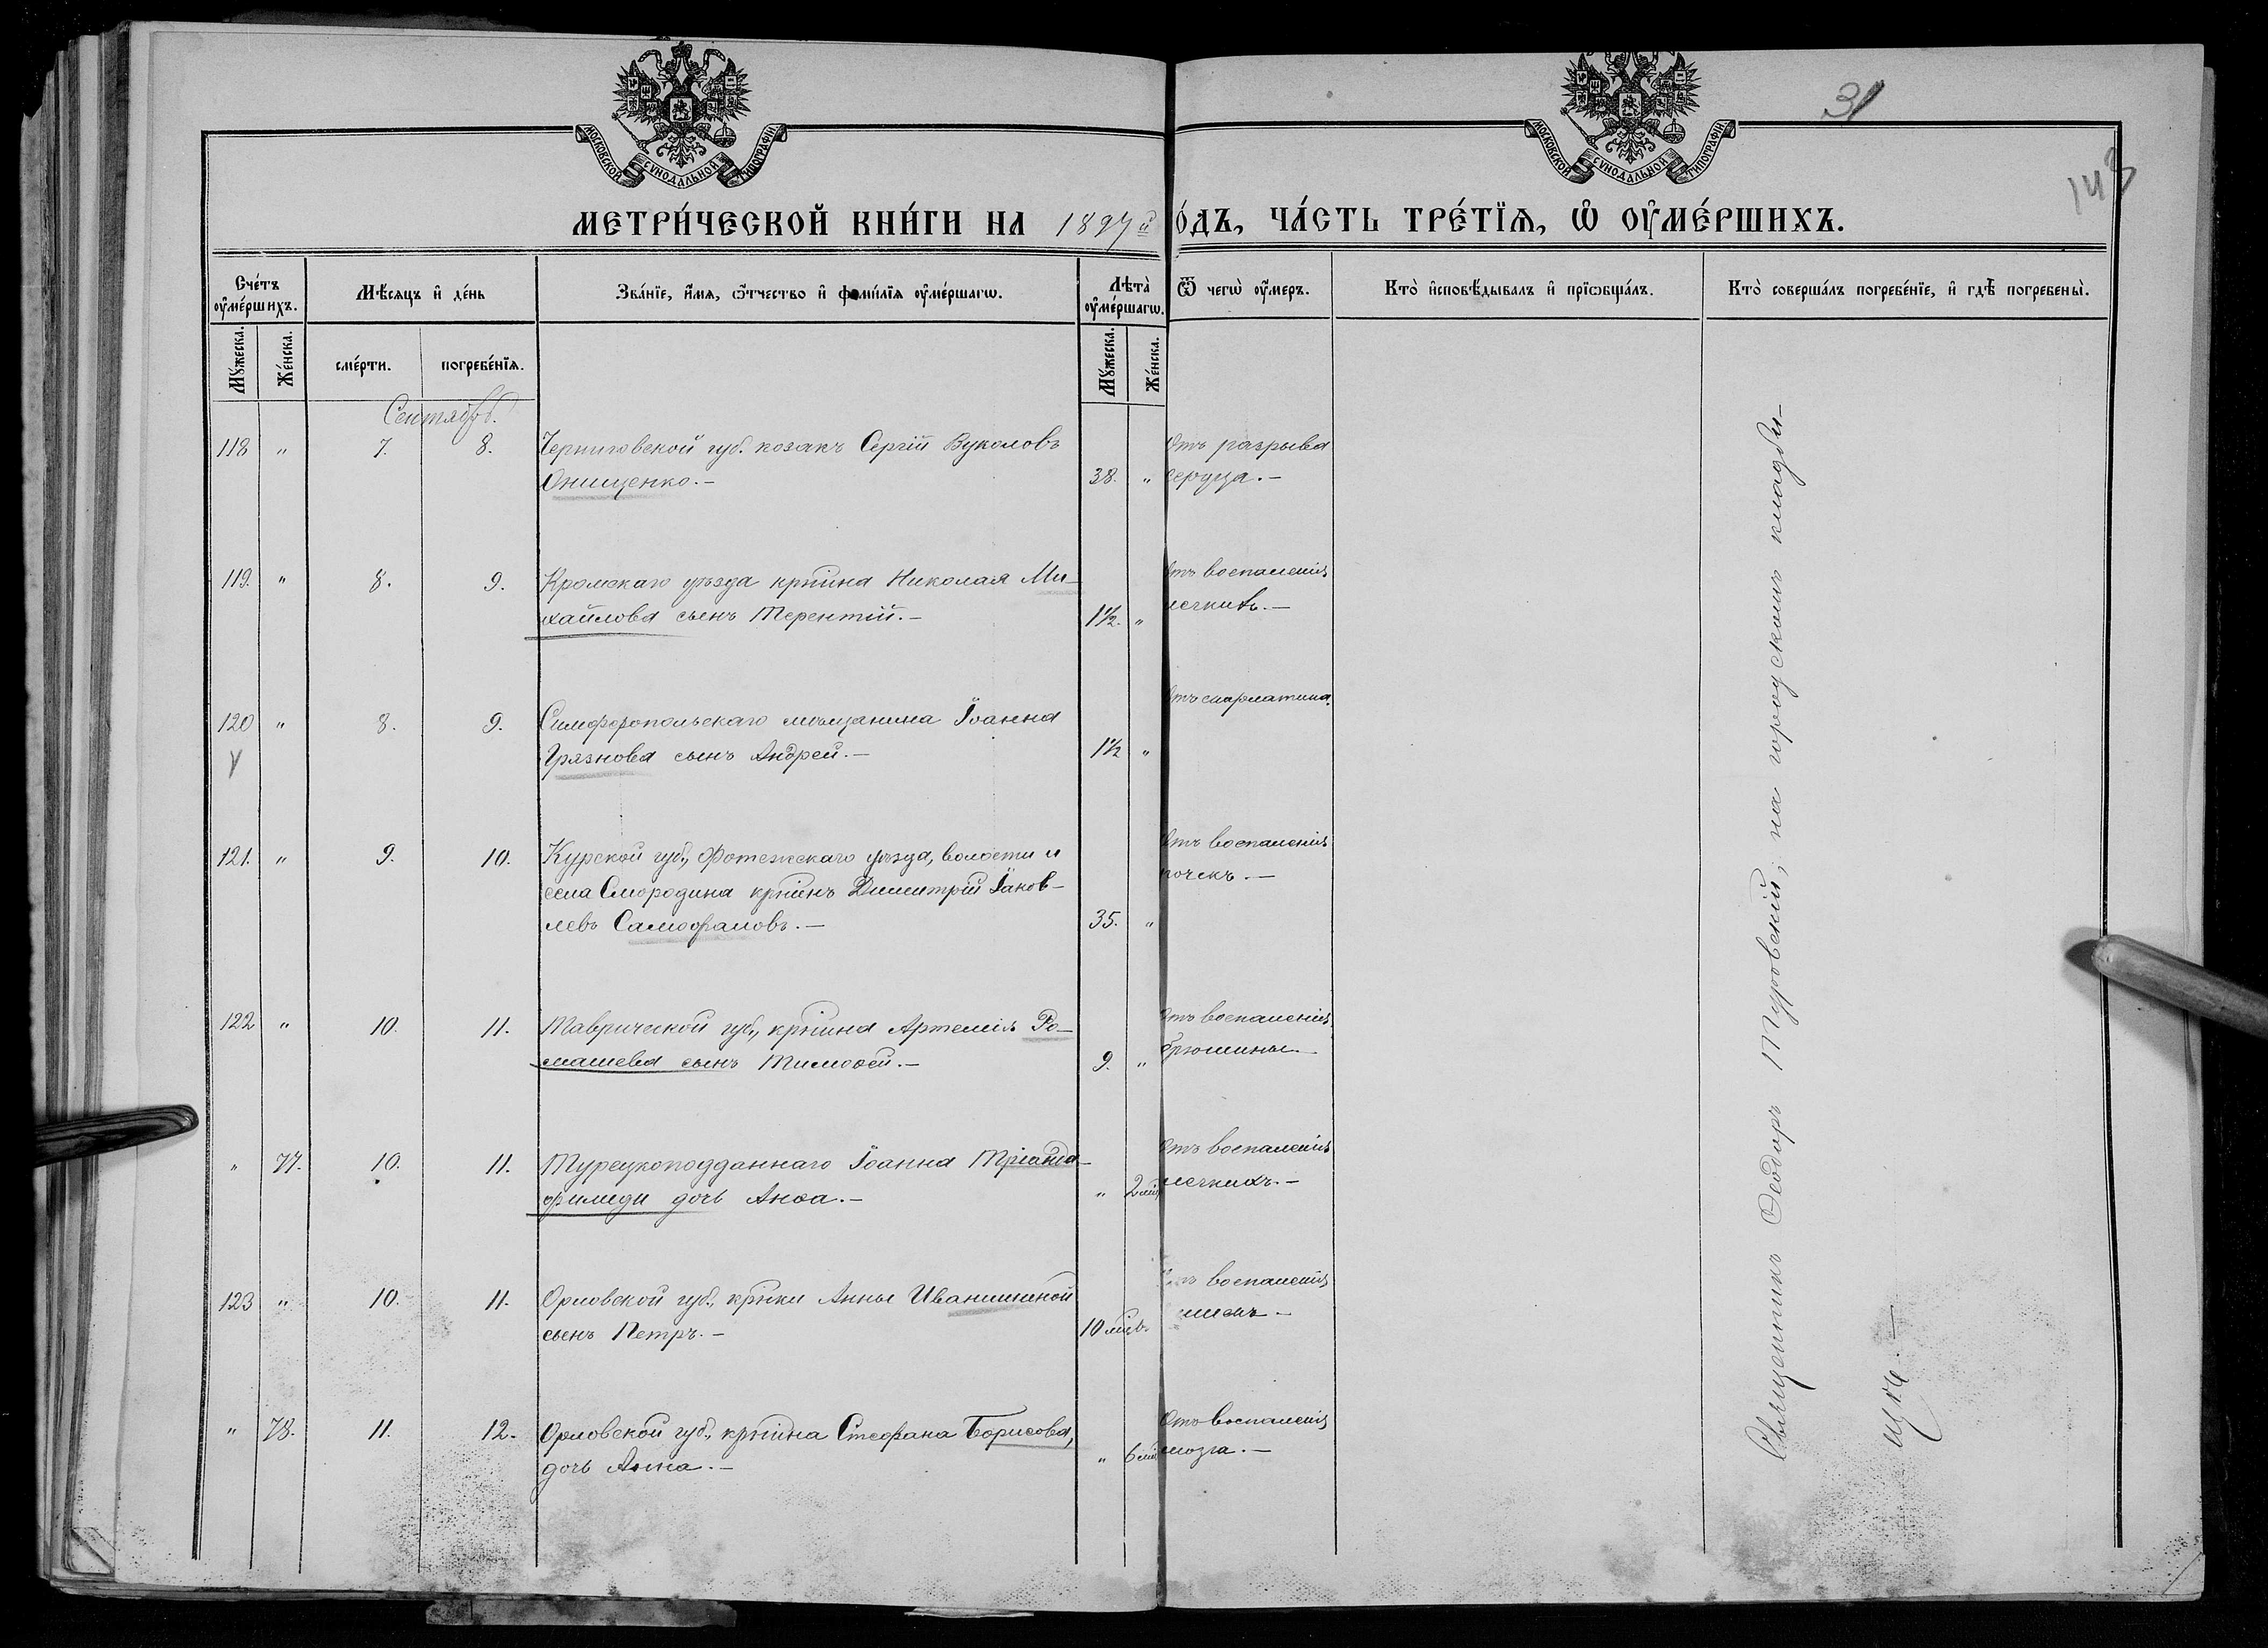 МОСКОВСКОЙ СѴНОДАЛЬНОЙ ТИПОГРАФІИ.
МОСКОВСКОЙ СѴНОДАЛЬНОЙ ТИПОГРАФІИ.
31
143
МЕТРИ́ЧЕСКОЙ КНИ́ГИ НА 1897й
О́ДЪ, ЧА́СТЬ ТРЕ́ТЇѦ, Ѡ҆ ОУ҆МЕ́РШИХЪ.
Сче́тъ оу҆ме́ршихъ.
Мꙋ́жеска.
Же́нска.
Мѣ́сѧцъ и҆ де́нь
сме́рти.
погребе́нїѧ.
Зва́нїе, и҆́мѧ, ѻ҆́тчество и҆ фами́лїѧ оу҆ме́ршагѡ.
Лѣта̀ оу҆ме́ршагѡ.
Мꙋ́жеска.
Же́нска.
Ѿ чегѡ̀ оу҆́меръ.
Кто̀ и҆сповѣ́дывалъ и҆ прїѡбща́лъ.
Кто̀ соверша́лъ погребе́нїе, и҆ гдѣ̀ погребены̀.
Сентябрь.
118 " 7. 8. Черниговской губ. козакъ Сергій Вуколовъ
Онищенко.– 38. "
Отъ разрыва
сердца.–
119. " 8. 9. Кромскаго уѣзда крнина Николая Ми-
хайлова сынъ Терентій.– 1½. "
Отъ воспаленія
легкихъ.–
120 " 8. 9. Симферопольскаго мѣщанина Іоанна
Грязнова сынъ Андрей.– 1½ "
Отъ скарлатина.
121. " 9. 10. Курской губ., Фотежскаго уѣзда, волости и
села Смородина крнинъ Димитрій Іаков-
левъ Самофаловъ.– 35. "
Отъ воспаленія
почекъ.–
122 " 10. 11. Таврической губ., крнина Артемія Ро-
машева сынъ Тимоѳей.– 9. "
Отъ воспаленія
брюшины.–
" 77. 10. 11. Турецкоподданнаго Іоанна Тріанда-
филиди дочь Анѳа.– " 2 мц
Отъ воспаленія
легкихъ.–
123 " 10. 11. Орловской губ., крнки Анны Иванишиной
сынъ Петръ.– 10 мцв.
Отъ воспаленія
" 78. 11. 12. Орловской губ., крнина Стефана Борисова,
дочь Анна.– " 6 мц
Отъ воспаленія
мозга.–
Священникъ Ѳеодоръ Туровскій; на городскомъ кладби-
щѣ.–